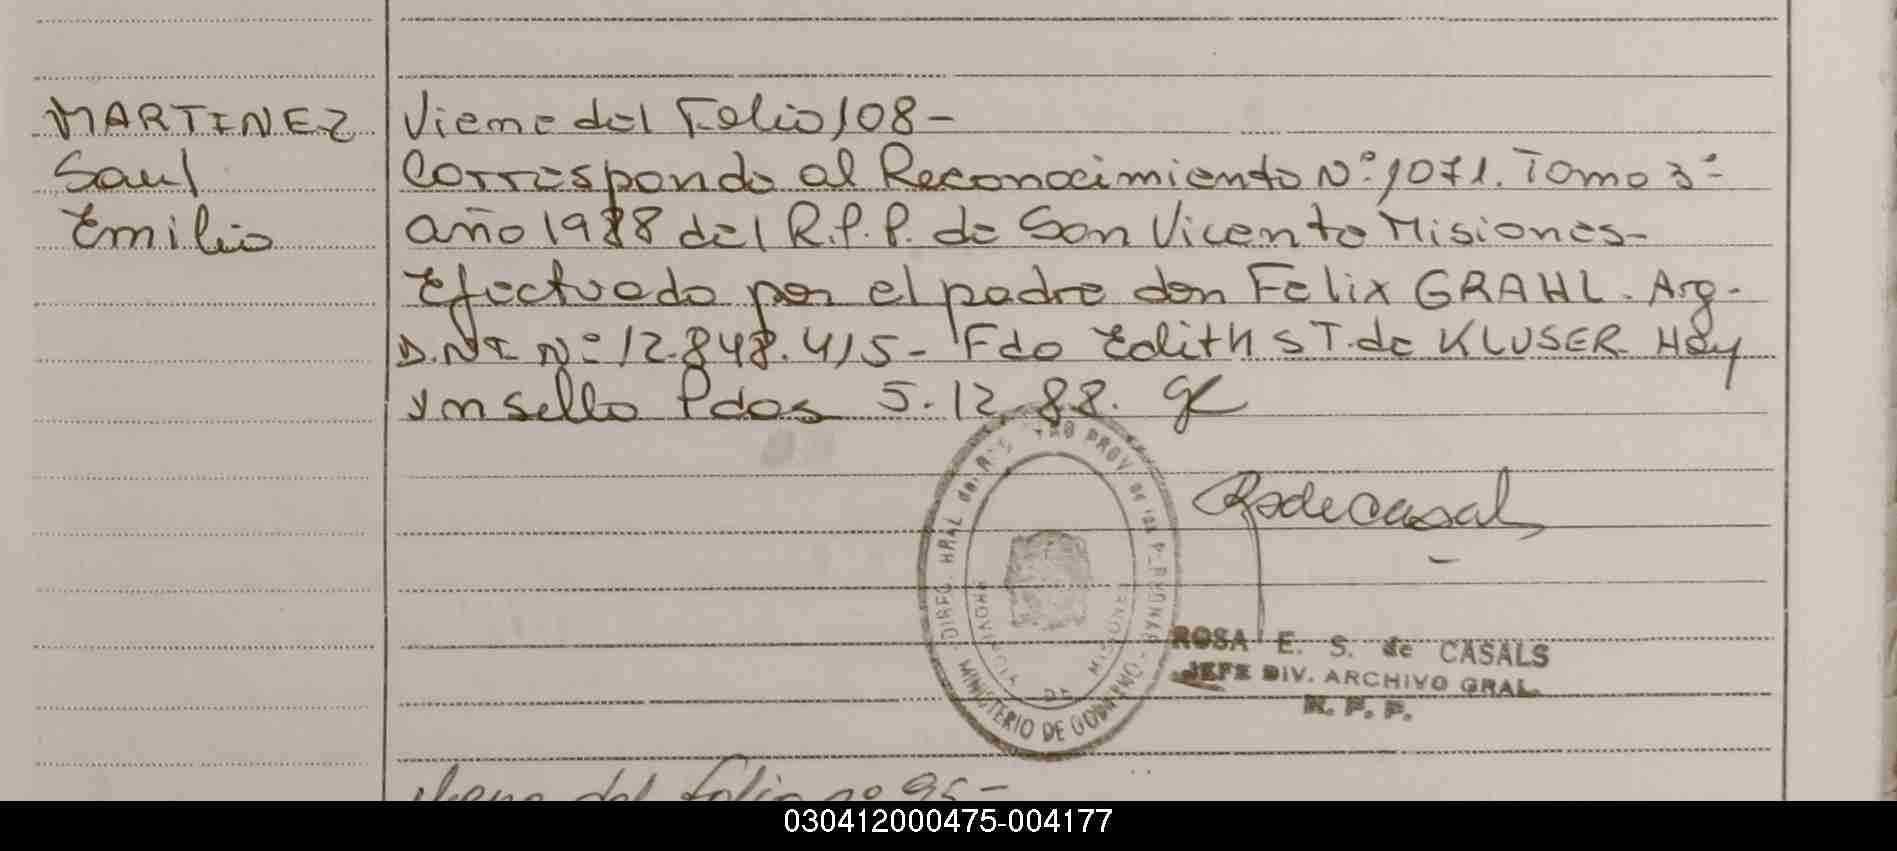 MARTINEZ
Saul
Emilio
Viene del Folio 108-
Corresponde al Reconocimiento Nº:1071. Tomo 3º
año 1988 del R.P.P. de San Vicente Misiones-
Efectuado por el padre don Felix GRAHL. Arg-
D.N.I Nº 12.848.415- Fdo Edith S T. de KLUSER Hay
un sello Pdas 5.12.88.
DIREC. GRAL del REGISTRO PROV de las PERSONAS
MINISTERIO DE GOBIERNO
PROVINCIA DE MISIONES
RSdeCasals
ROSA E. S. de CASALS
JEFE DIV. ARCHIVO GRAL.
R. P. P.
Viene del folio nº 95-
030412000475-004177